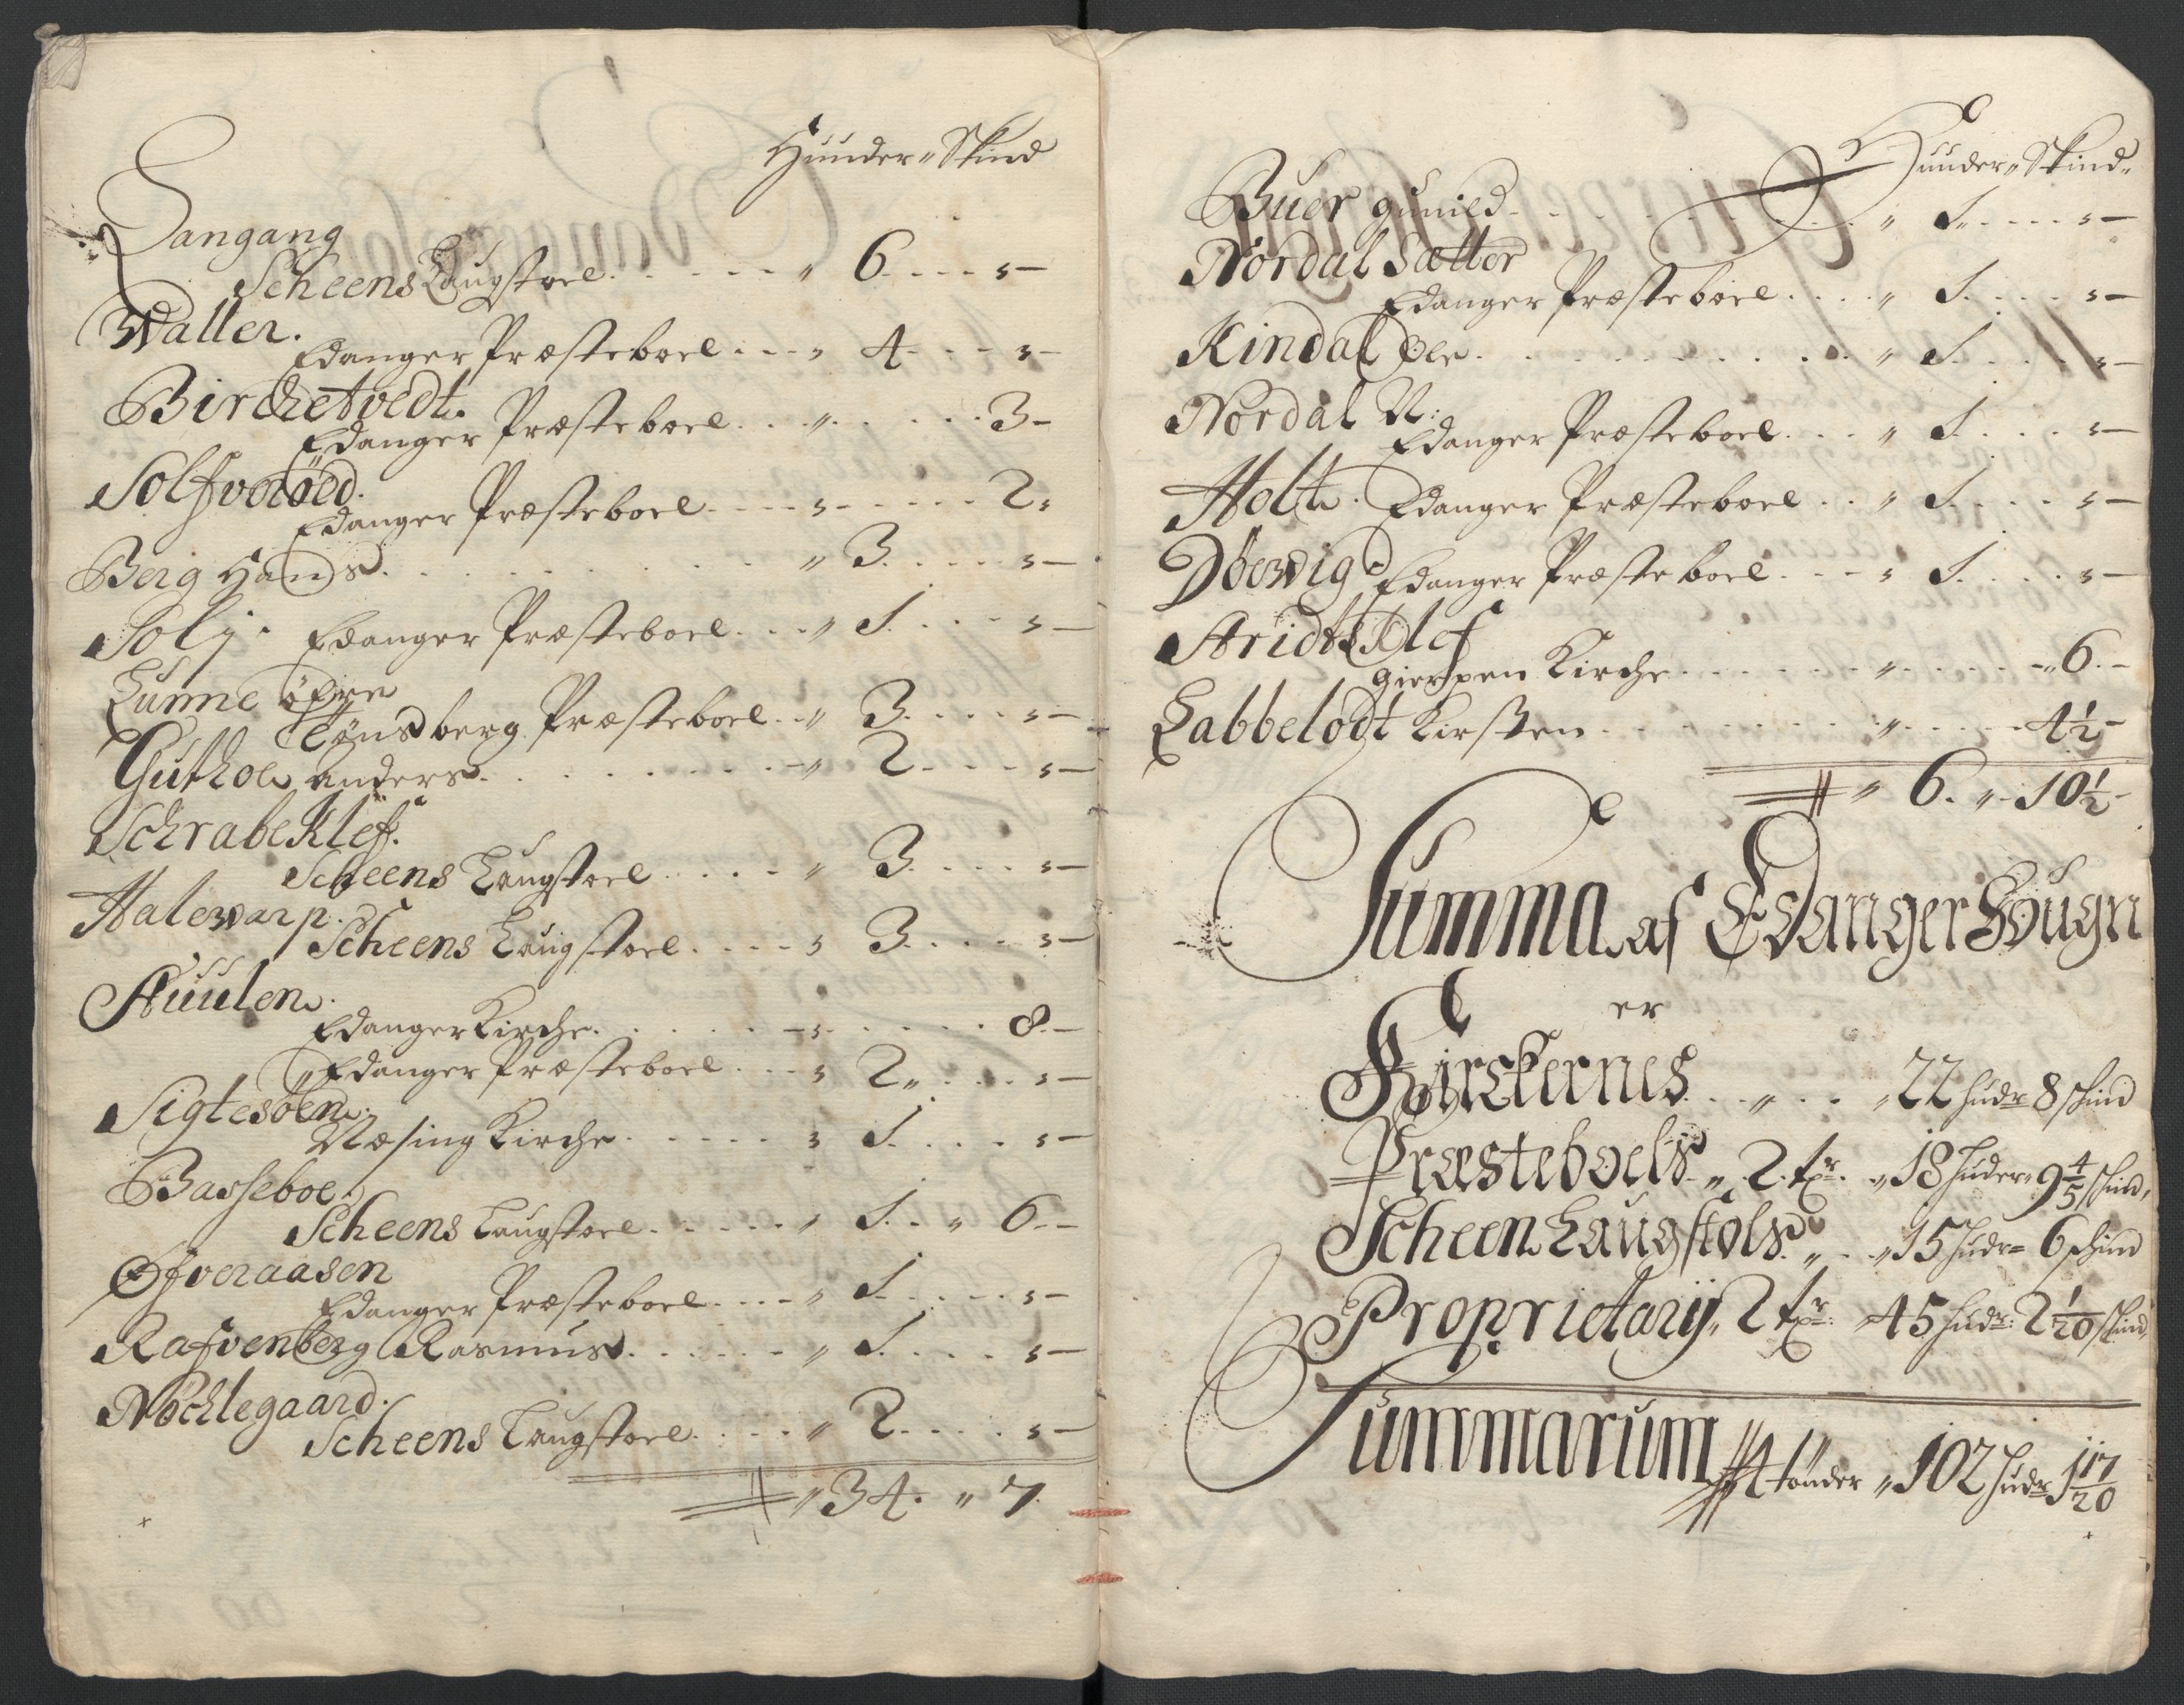 Huuder " Skind
Langang
Scheens Laugstoel . . . . . " 6 . . . . " —
Waller.
Edanger Præsteboel . . . " 4 . . . " —
Birchetvedt.
Edanger Præsteboel . . . " . . . . . 3 —
Solfverød.
Edanger Præsteboel . . . . " . . . . . 2 "
Berg Hans . . . . . . . " 3 . . . . " —
Solj. Edanger Præsteboel . . . " 1 . . . . " —
Lunne øfre
Tønsberg Præsteboel . . " 3 . . . . " —
Guthoe anders . . . . . . . " 2 . . . . " —
Schrabeklef.
Scheens Laugstoel . . . . . " 3 . . . . " —
Halewarp.
Scheens Laugstoel . . . . " 3 . . . . " —
Hüülen.
Edanger Kirche . . . . . " . . . . . 8 —
Edanger Præsteboel . . . " 2 " . . . . " —
Sigtesøen.
Næsing Kirche . . . . . " 1 . . . . " —
Basseboe.
Scheens Laugstoel . . . . . " 1 . . " 6 —
Øfveraasen
Edanger Præsteboel . . . . " 1 . . . . . " —
Rafvenberg Rasmus . . . . . " 1 . . . . " —
Nøchlegaard.
Scheens Laugstoel . . . . " 2 . . . . . " —
" 34 . " 7.
Huuder " Skind "
Buer gunild . . . . . . . . " 1 . . . . " —
Nordal Sætter
Edanger Præsteboel . . . . " 1 . . . . " —
Kindal Ole . . . . . . . . " 1 . . . . " —
Nordal N:
Edanger Præsteboel . . . " 1 . . . . " —
Holt. Edanger Præsteboel . . " 1 . . . . " —
Døewig. Edanger Præsteboel . . . " 1 . . . . " —
Aridtsklef
gierpen Kirche . . . . . . . " . . . . . " 6 . —
Labbelodt Kirsten . . . . . . . . . " . . . . . 4 1/2 —
" 6 . " 10 1/2 —
Summa af Edanger Sougn
er
Kirckernes . . " . . " 22 hudr 8 skind
Præsteboels " 2 tr. " 18 huder " 9 4/5 skind,
Scheen Laugstols " . " 15 hudr = 6 skind
Proprietarij, 2 tr: " 45 hudr: 2 1/20 skind
Summarum 4 tønder " 102 hudr 1 17/20